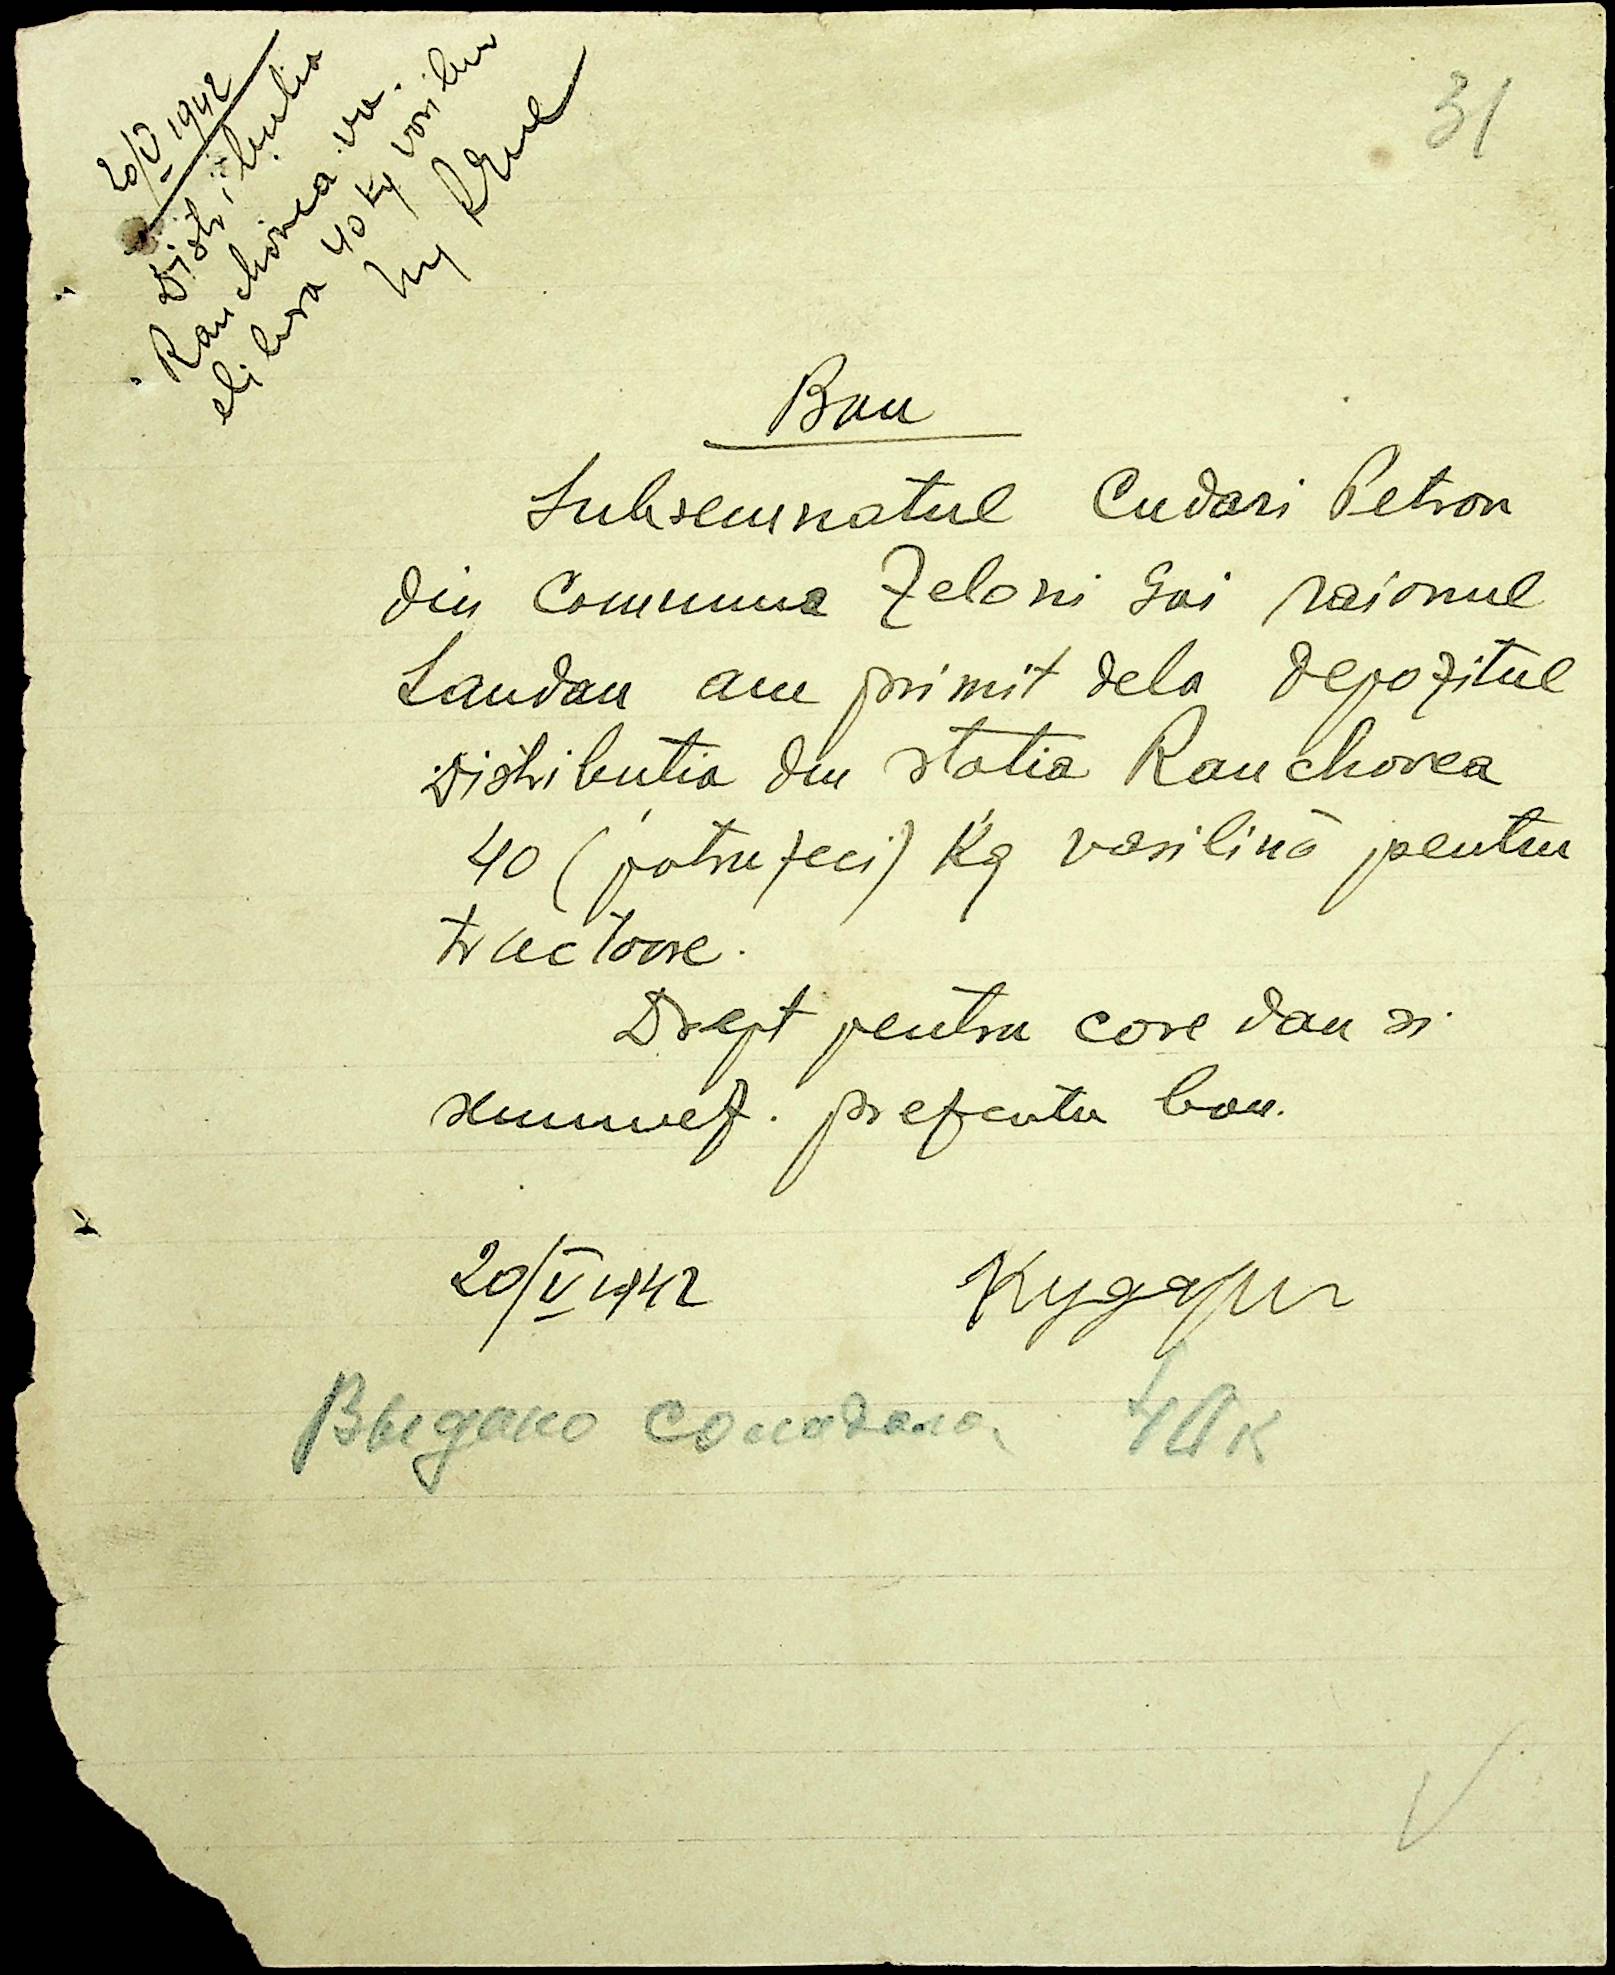 31
20/V 1942
Distributia
Rauchovca va
elibera 40 kg vasilin
Bon
Subsemnatul Cudari Petron
din Comuna Zeloni Gai raionul
Landau am primit dela depozitul
Distributia din statia Rauchovca
40 (patruzeci) Kg vasilină pentru
tractoare.
Drept pentru care dau si
semnez. prezentu bon.
20/V 1942 Кудари
Выдано 40 к